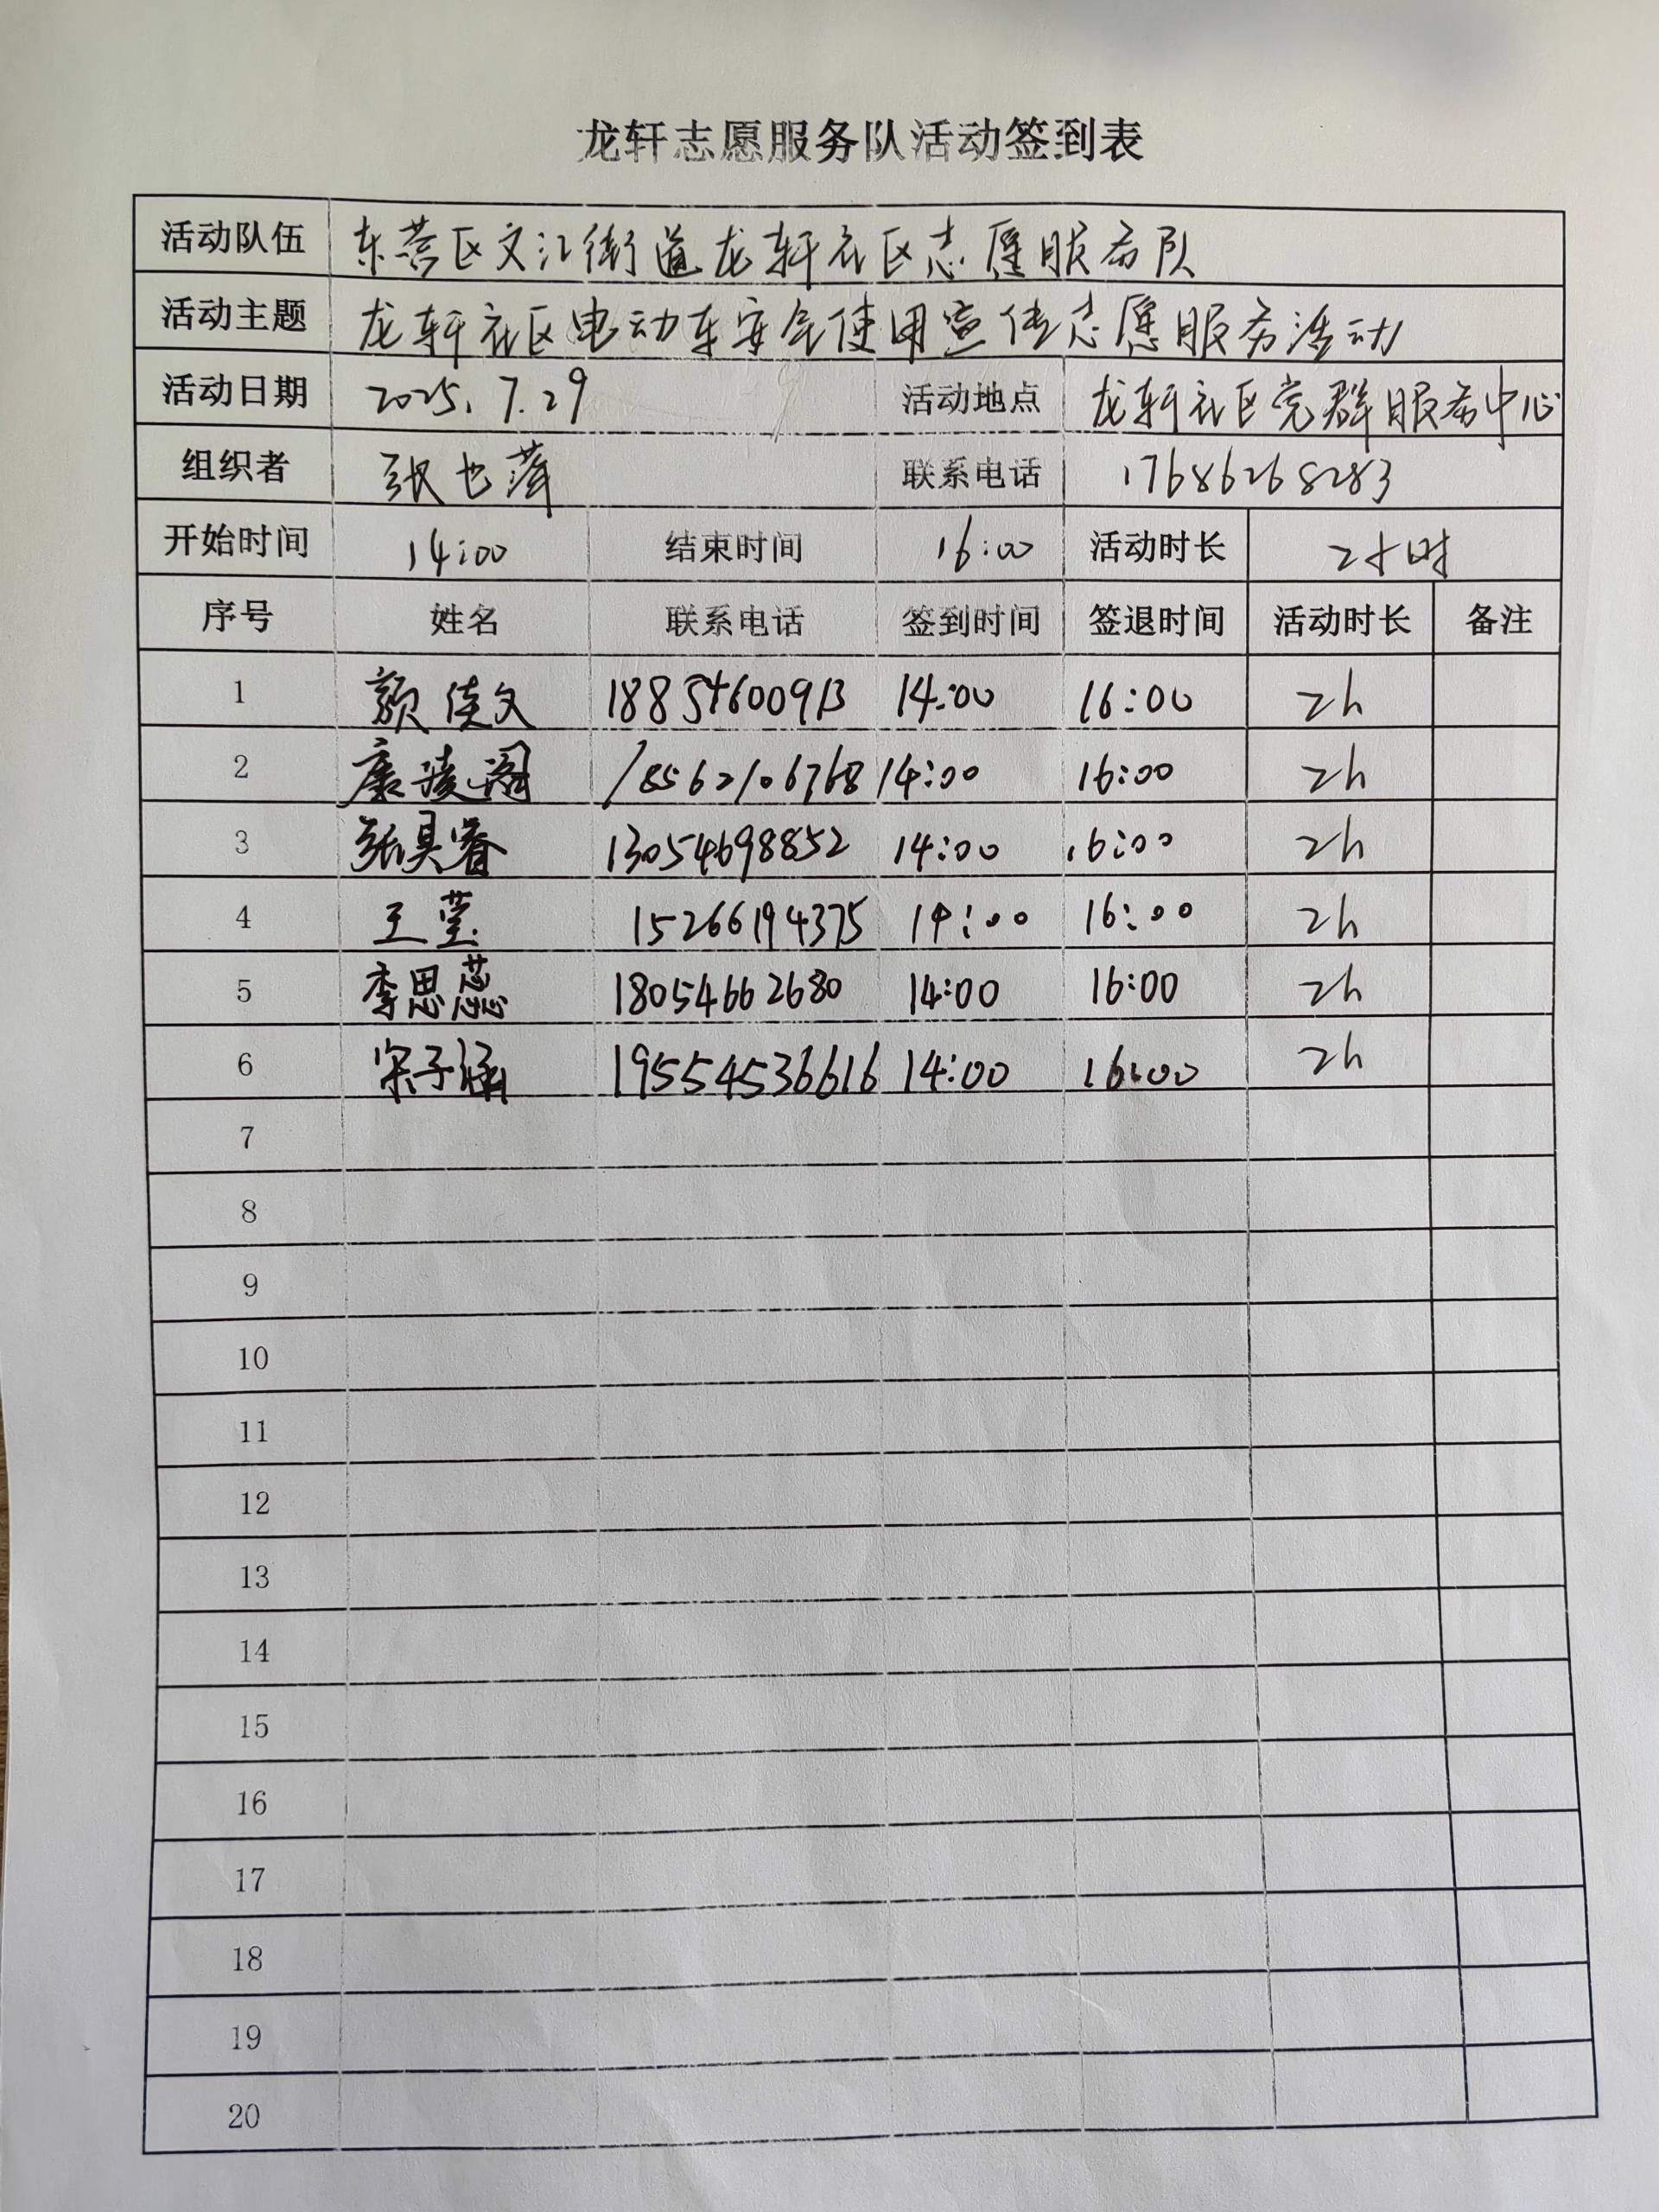 龙轩志愿服务队活动签到表
活动队伍 东营区文汇街道龙轩社区志愿服务队
活动主题 龙轩社区电动车安全使用宣传志愿服务活动
活动日期 2025.7.29 活动地点 龙轩社区党群服务中心
组织者 张也萍 联系电话 17686268283
开始时间 14:00 结束时间 16:00 活动时长 2小时
序号 姓名 联系电话 签到时间 签退时间 活动时长 备注
1 颜佳文 18854600913 14:00 16:00 2h
2 康 18562106768 14:00 16:00 2h
3 张昊睿 13054698852 14:00 16:00 2h
4 王莹 15266194375 14:00 16:00 2h
5 李思蕊 18054662680 14:00 16:00 2h
6 宋子涵 19554536616 14:00 16:00 2h
7
8
9
10
11
12
13
14
15
16
17
18
19
20